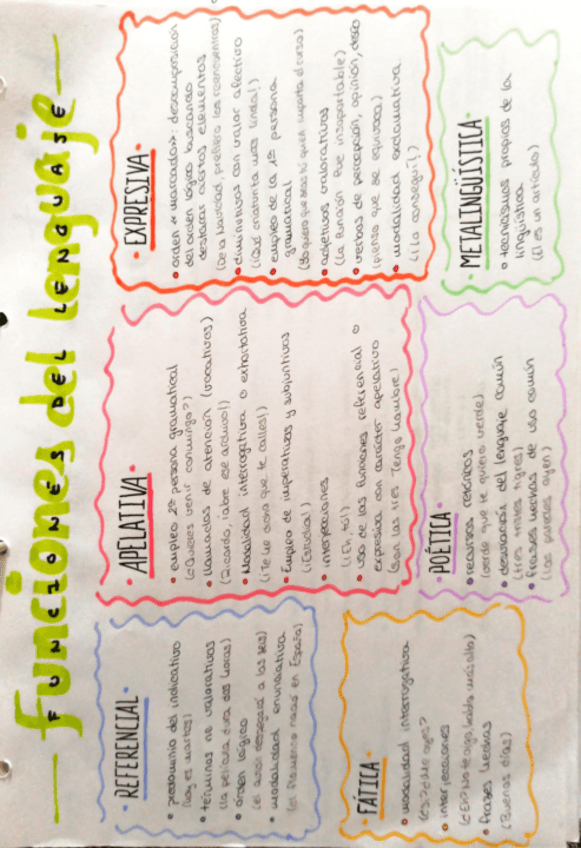 funciones del lenguaje
FUNCIONES DEL LENGUAJE
· REFERENCIAL ·
• predominio del indicativo
(hoy es martes)
• términos no valorativos
(la película dura dos horas)
• orden lógico
(el avión despegará a las seis)
• modalidad enunciativa
(el flamenco nació en España)
· APELATIVA ·
• empleo 2ª persona gramatical
(¿Quieres venir conmigo?)
• llamadas de atención (vocativos)
(Ricardo, ¡abre ese archivo!)
• Modalidad interrogativa o exhortativa
(¡Te he dicho que te calles!)
• Empleo de imperativos y subjuntivos
(¡Estudia!)
• interjecciones
(¡Eh tú!)
• uso de las funciones referencial o
expresiva con carácter apelativo
(son las tres, tengo hambre)
· EXPRESIVA ·
• orden «marcado»: descomposición
del orden lógico buscando
destacar ciertos elementos
(De la Navidad, prefiero los reencuentros)
• diminutivos con valor afectivo
(¡Qué criaturita más linda!)
• empleo de la 1ª persona
gramatical
(Yo quiero que seas tú quien imparta el curso)
• adjetivos valorativos
(la función fue insoportable)
• verbos de percepción, opinión, deseo
(pienso que se equivoca)
• modalidad exclamativa
(¡Lo conseguí!)
FÁTICA ·
• modalidad interrogativa
(¿Sí? ¿dónde oyes?
• interjecciones
(¿Eh? No te oigo, habla más alto)
• frases hechas
(Buenos días)
POÉTICA ·
• recursos retóricos
(verde que te quiero verde)
• desviación del lenguaje común
(tres tristes tigres)
• frases hechas de uso común
(las paredes oyen)
METALINGÜÍSTICA ·
• tecnicismos propios de la
lingüística
(El es un artículo)